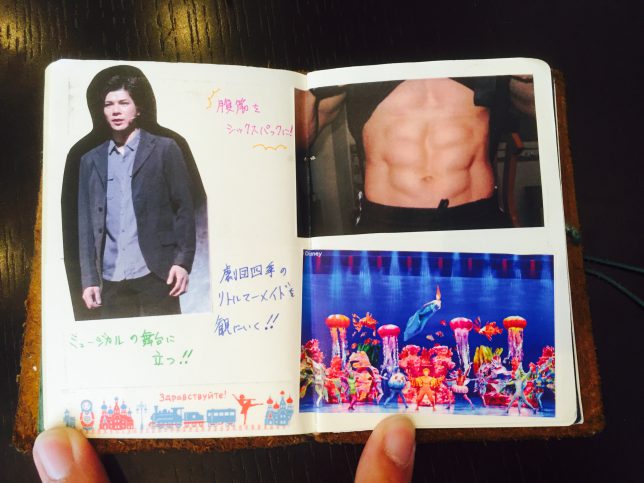 腹筋を
シックスパックに!
劇団四季の
リトルマーメイドを
観にいく!!
ミュージカルの舞台に
立つ!!
Здравствуйте!
Disney